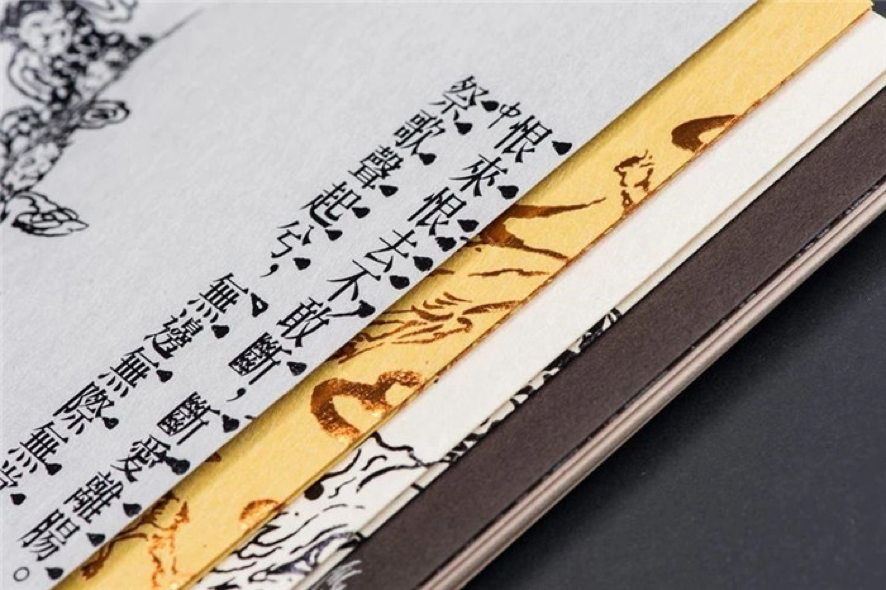 恨來恨去不敢斷，斷愛離腸。
祭歌聲起兮，無邊無際無